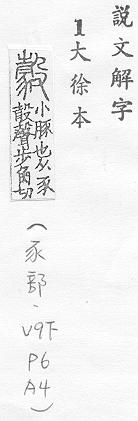 説文解字
1大徐本
豰
小豚也从豕
𣪊聲步角切
(豕部、V9下 P6 A4)